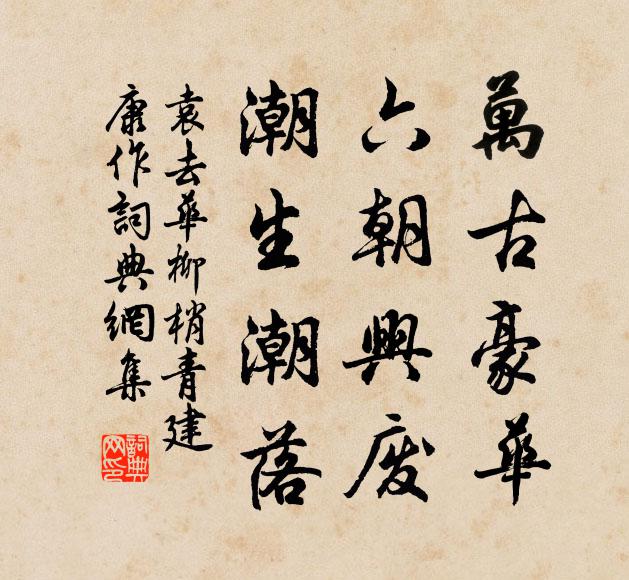 萬古豪華
六朝興废
潮生潮落
袁去華柳梢青建
康作詞典網集
詞典网印